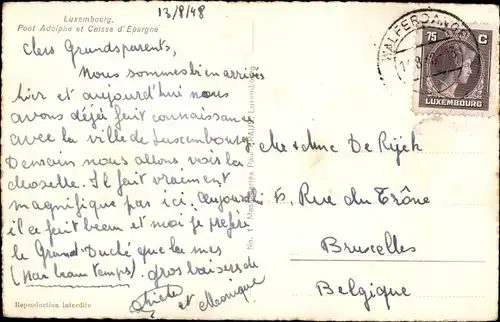 13/8/48
Luxembourg,
Pont Adolphe et Caisse d'Epargne
Chers Grandsparents,
Nous sommes bien arrivés
hier et aujourd'hui nous
avons déjà fait connaissance
avec la ville de Luxembourg
Demain nous allons voir la
Moselle. Il fait vraiment
magnifique par ici. Aujourd'hui
il a fait beau et moi je préfère
le Grand Duché que la mer
(par beau temps). gros baisers de
et Monique
Reproduction interdite
No. 1 Luxembourg
WALFERDANGE
75 C
LUXEMBOURG
Mr et Mme De Rijck
5, Rue du Trône
Bruxelles
Belgique